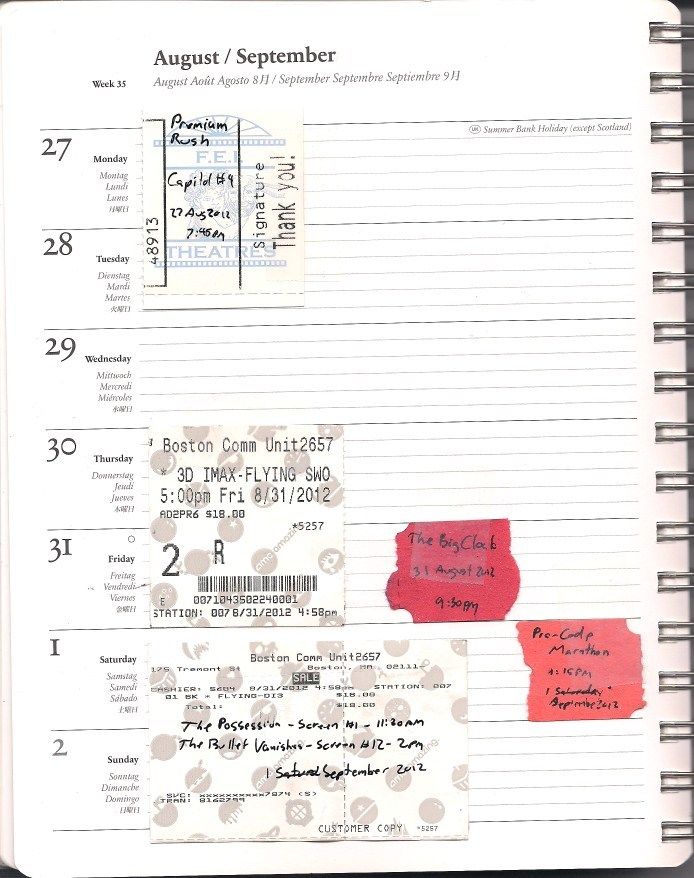 August / September
Week 35
August Août Agosto 8月 / September Septembre Septiembre 9月
UK Summer Bank Holiday (except Scotland)
27
Monday
Montag
Lundi
Lunes
月曜日
Premium
Rush
F.E.I.
Capitol #4
27 Aug 2012
7:45pm
THEATRES
48913
Signature
Thank you!
28
Tuesday
Dienstag
Mardi
Martes
火曜日
29
Wednesday
Mittwoch
Mercredi
Miércoles
水曜日
30
Thursday
Donnerstag
Jeudi
Jueves
木曜日
Boston Comm Unit2657
* 3D IMAX-FLYING SWO
5:00pm Fri 8/31/2012
AD2PR6 $18.00
*5257
2 R
E 0071043502240001
STATION: 007 8/31/2012 4:58pm
31
Friday
Freitag
Vendredi
Viernes
金曜日
The Big Clock
31 August 2012
9:30pm
1
Saturday
Samstag
Samedi
Sábado
土曜日
Pre-Code
Marathon
4:15PM
1 Saturday
September 2012
Boston Comm Unit2657
175 Tremont St Boston, MA. 02111-
SALE
CASHIER: 5604 8/31/2012 4:58pm STATION: 007
01 BK * FLYING-DI3 $18.00
Total: $18.00
The Possession - Screen #1 - 11:30am
The Bullet Vanishes - Screen #12 - 2pm
1 September 2012
SVC: xxxxxxxxxxxx7874 (S)
TRAN: 8162799
CUSTOMER COPY *5257
2
Sunday
Sonntag
Dimanche
Domingo
日曜日